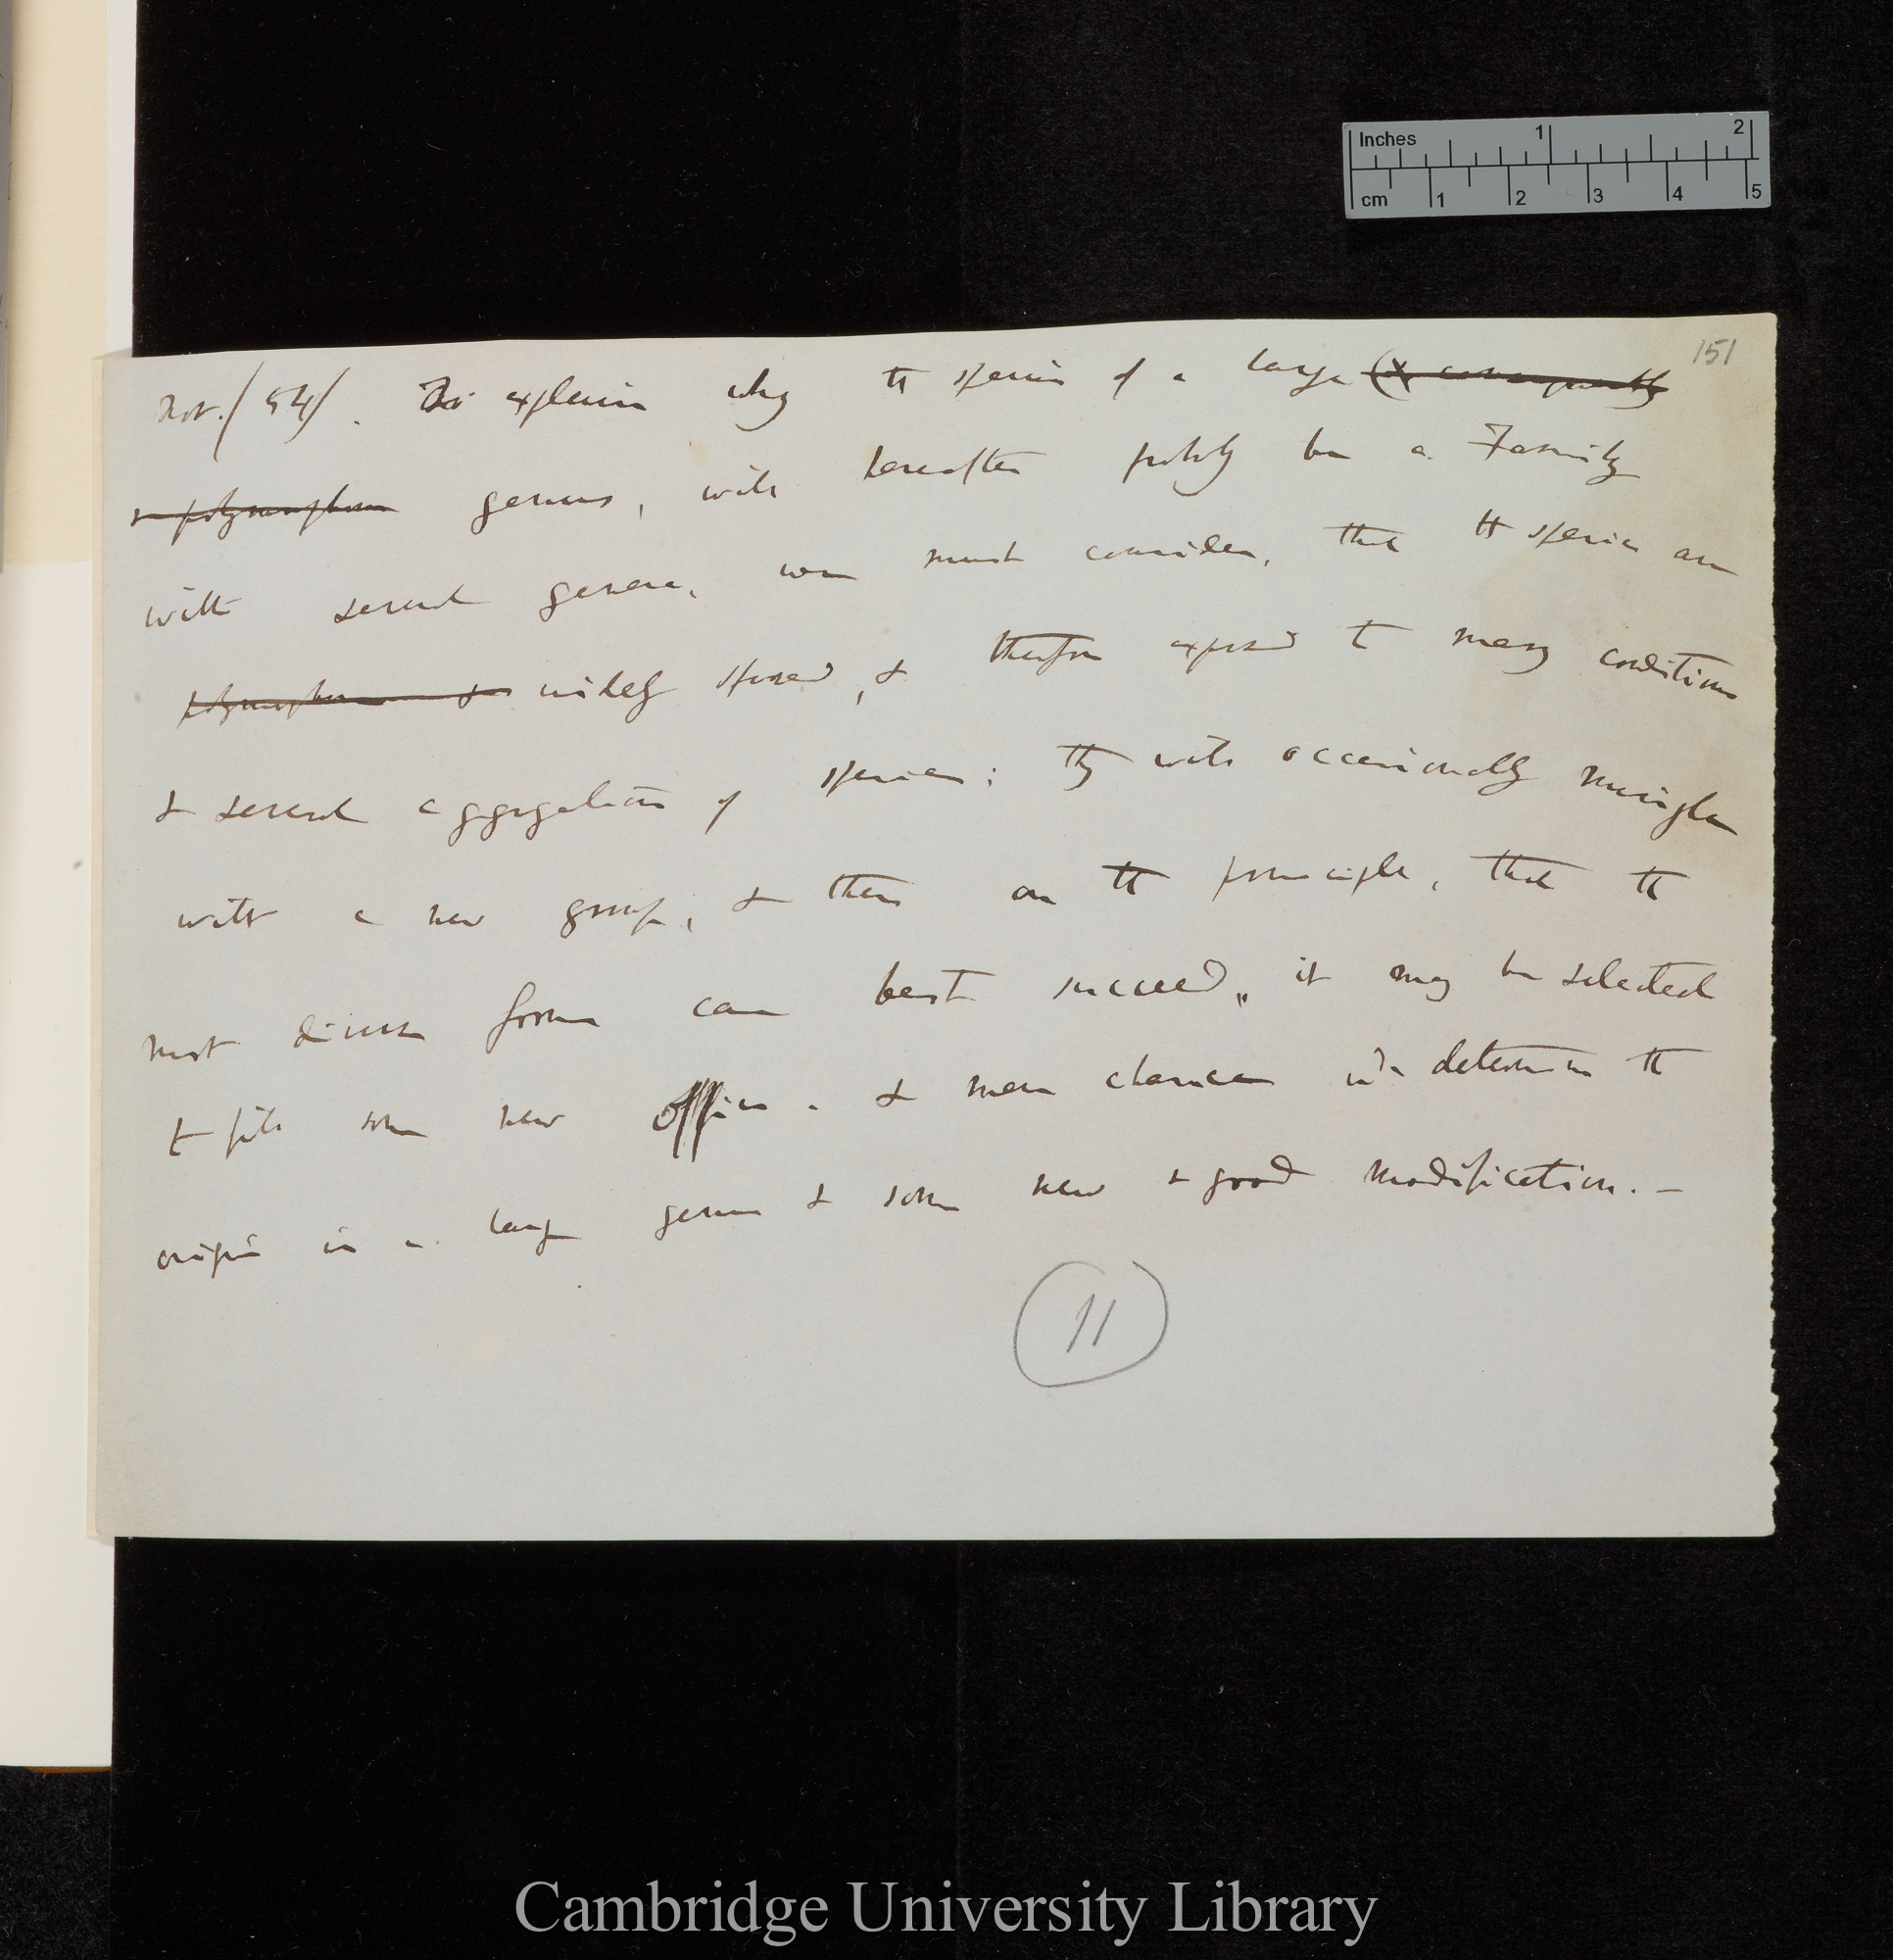 Inches 1 2
cm 1 2 3 4 5
151
Nov. /54/. To explain why the species of a large (& consequently
& polymorphous genus, will hereafter probly be a Family
with several genera, we must consider, that the species are
polymorphous & widely spread, & therefore exposed to many conditions
& several aggregations of species; they will occasionally mingle
with a new group, & then on the principle, that the
most diverse forms can best succeed, it may be selected
to fill some new office. & mere chance wd determine the
origin in a large genus & some new & good modification. —
11
Cambridge University Library